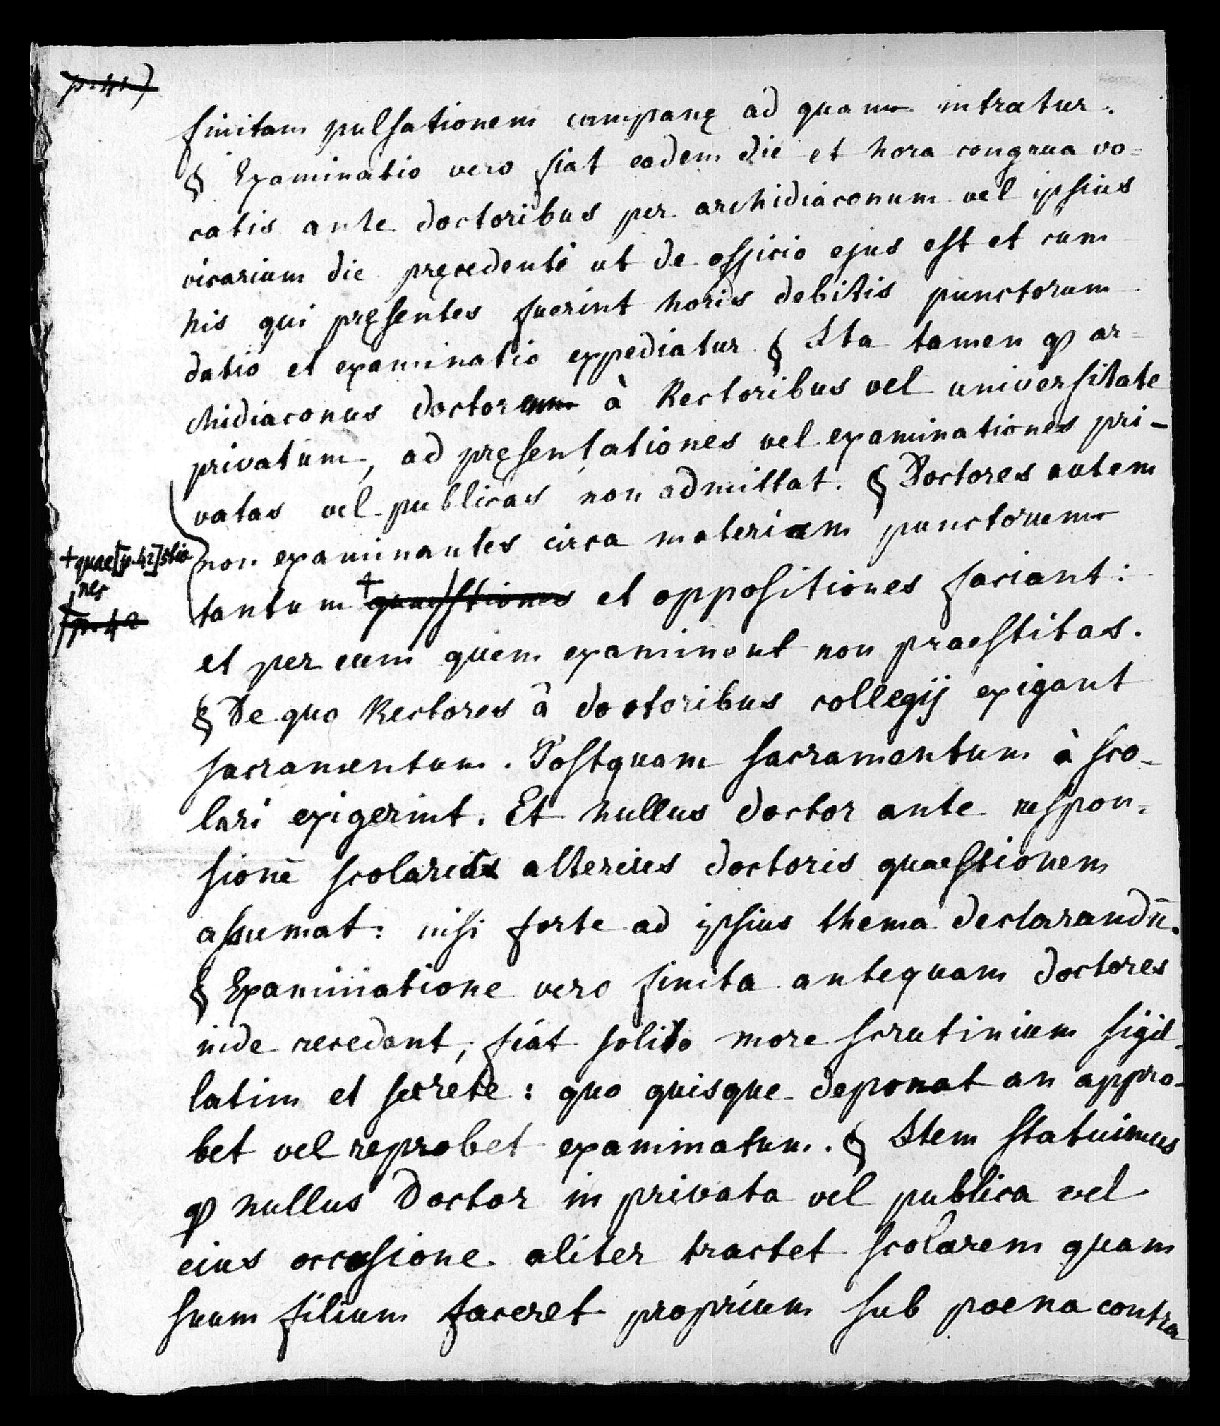 p. 41)
finitam pulsationem campanę ad quam intratur.
§ Examinatio vero fiat eadem die et hora congrua vo=
catis ante doctoribus per archidiaconum vel ipsius
vicarium die pręcedenti ut de officio ejus est et cum
his qui pręsentes fuerint horis debitis punctorum
datio et examinatio expediatur § Ita tamen ꝙ ar-
chidiaconus doctorem à Rectoribus vel universitate
privatum, ad pręsentationes vel examinationes pri-
vatas vel publicas non admittat. § Doctores autem
non examinantes circa materiam punctorum
tantum + quaestiones et oppositiones faciant:
+quae[p.42]stio
nes
p. 42
et per eum quem examinent non praestitas.
§ De quo Rectores à doctoribus collegij exigant
sacramentum. Postquam sacramentum à sco-
lari exigerint. Et nullus doctor ante respon-
sionē scolaris alterius doctoris quaestionem
assumat: nisi forte ad ipsius thema declarandū.
§ Examinatione vero finita antequam doctores
inde recedant, fiat solito more scrutinium sigil-
latim et secrete: quo quisque deponat an appro-
bet vel reprobet examinatum. § Item statuimus
ꝙ nullus Doctor in privata vel publica vel
eius occasione aliter tractet scolarem quam
suum filium faceret proprium sub poena contra